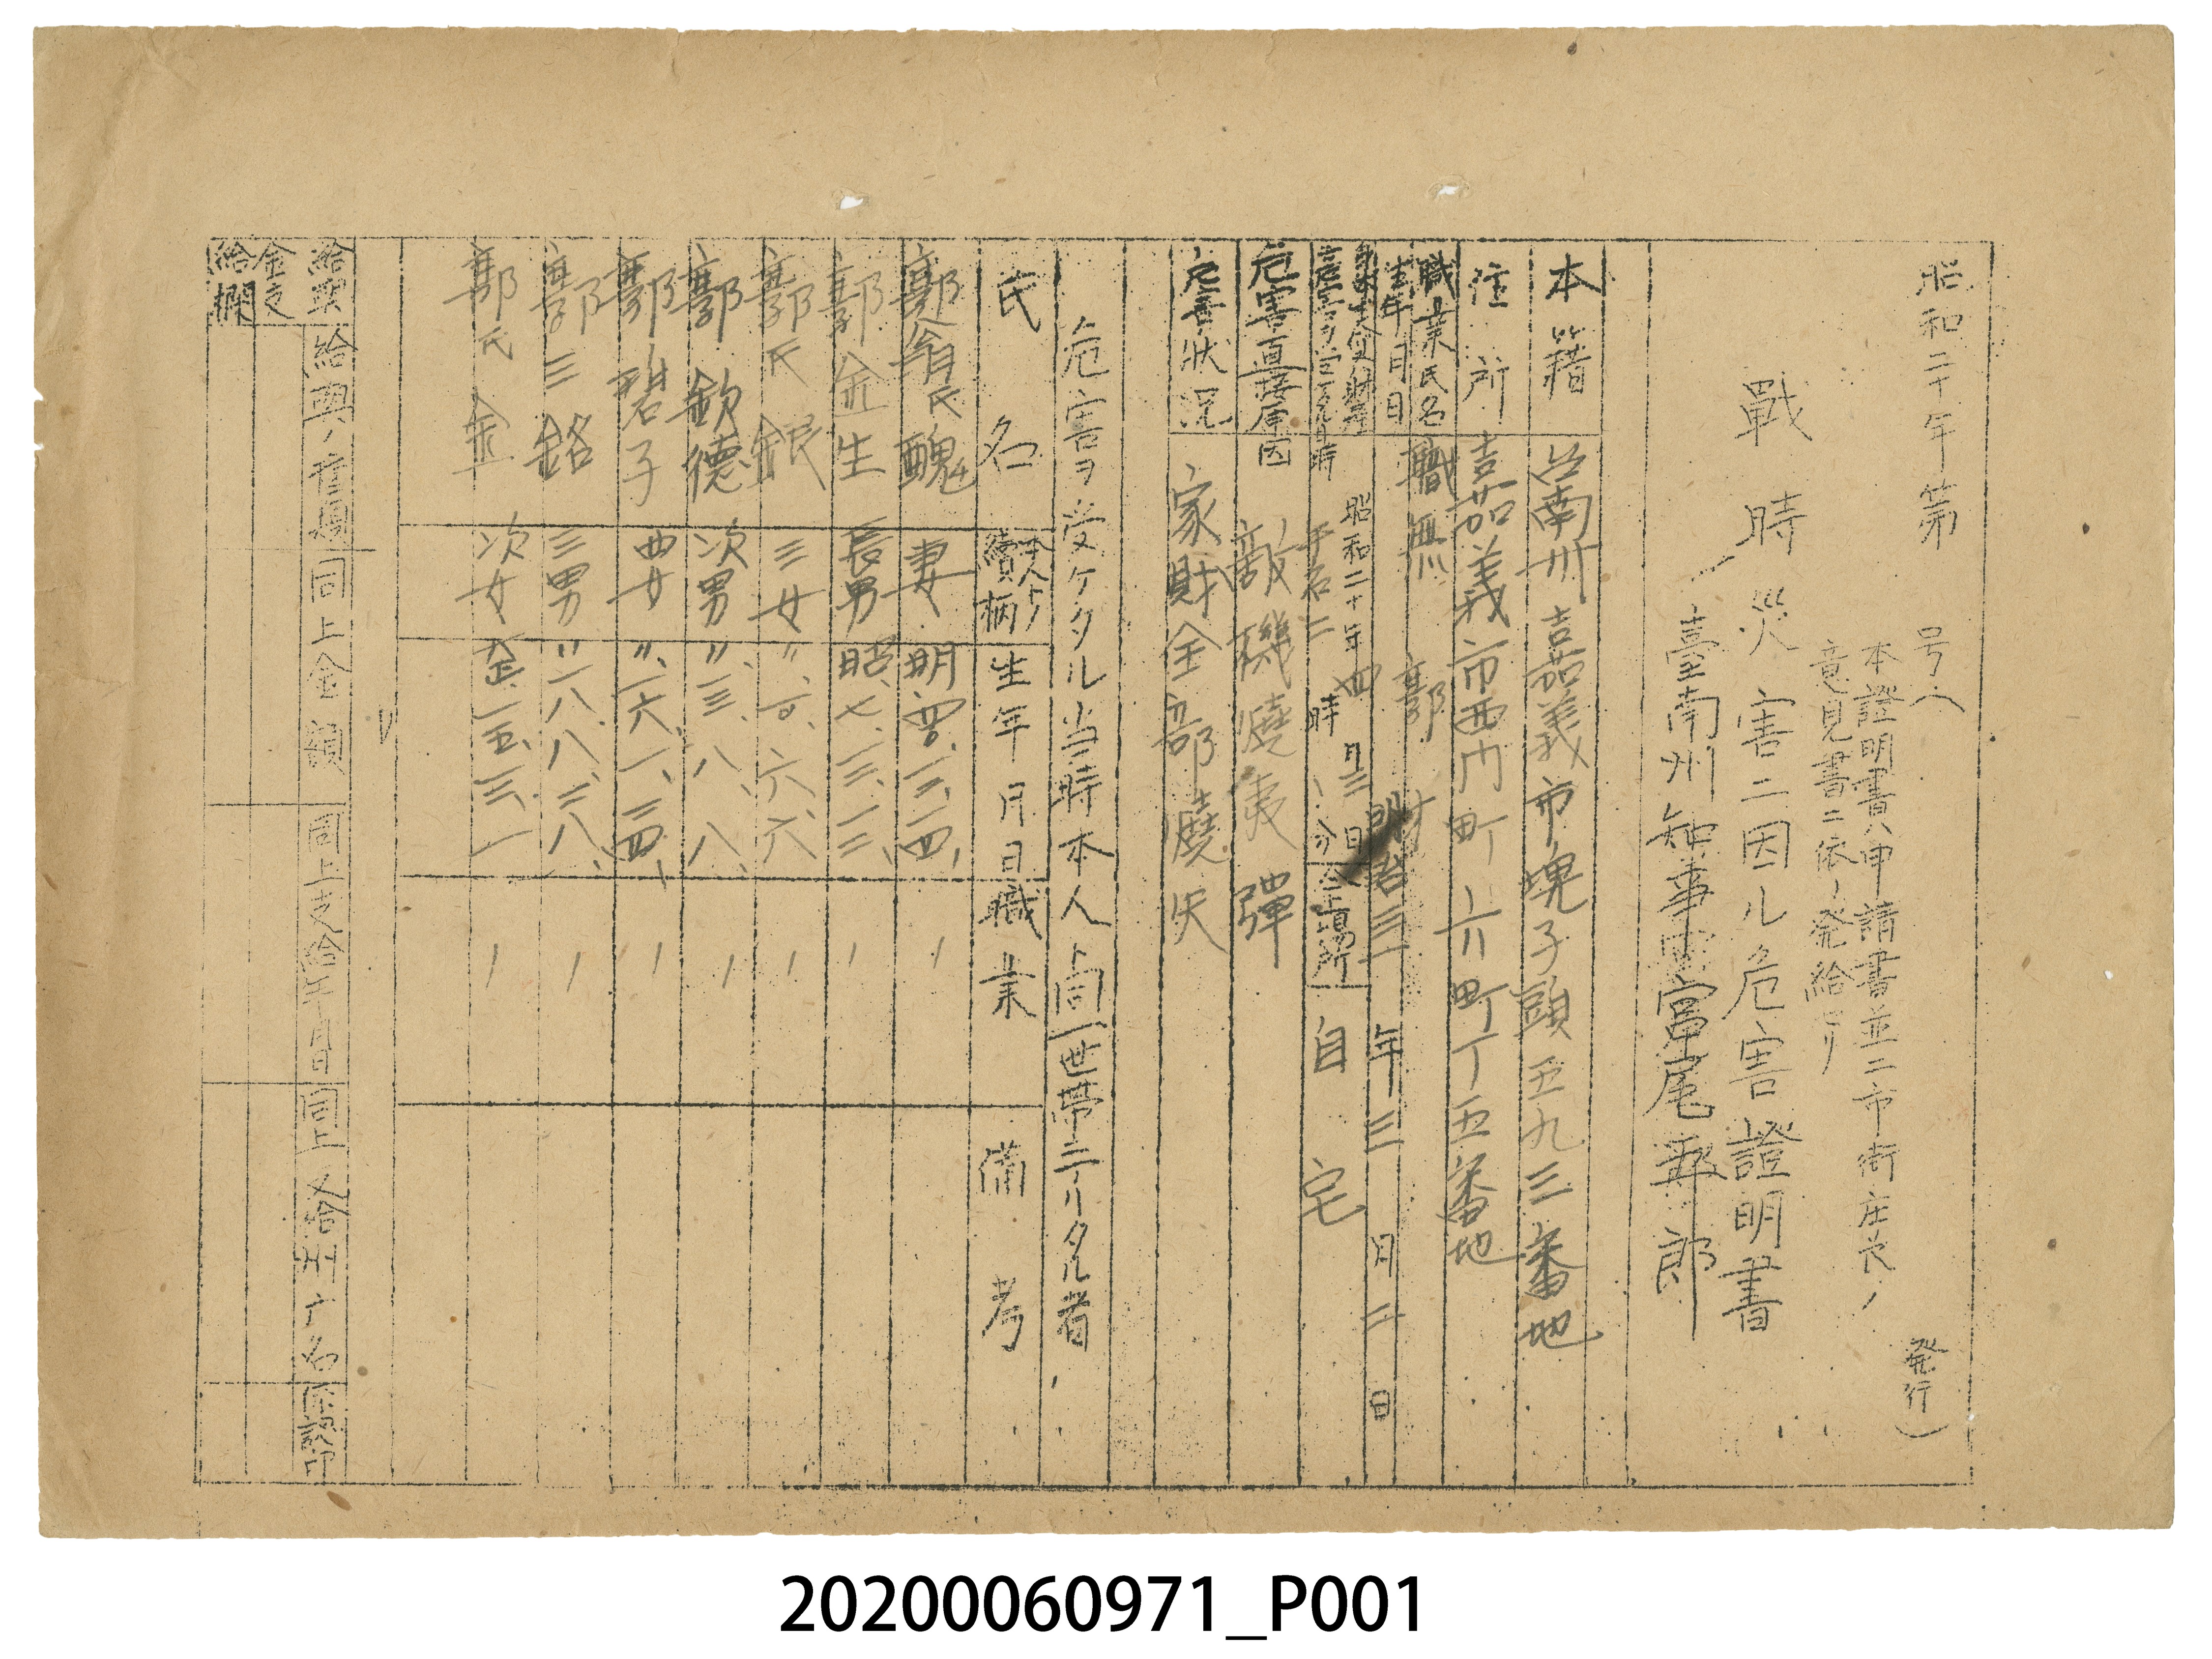 昭和二十年第　号（　発行）
本證明書ハ申請書並ニ市街庄長ノ
意見書ニ依リ発給セリ
戰時災害ニ因ル危害證明書
臺南州知事宮尾五郎
本籍 台南州嘉義市埤子頭五九三番地
住所 嘉義市西門町六町丁五番地
職業氏名 職無 郭
生年月日 明治三三年三月二日
危害ヲ受ケタル日時 昭和二十年四月三日
午后二時 分 仝上場所 自宅
危害直接原因 敵機燒夷彈
危害状況 家財全部燒失
危害ヲ受ケタル当時本人ト同一世帯ニアリタル者
氏名 本人トノ續柄 生年月日 職業 備考
郭翁氏醜 妻 明
郭金生 長男 昭、七、
郭氏銀 三女 〃
郭欽德 次男 〃一三、八、八、
郭碧子 四女 〃一六、一、二四、
郭三銘 三男 〃一八、八、二八、
郭氏金 次女
給與金支給欄
給與ノ種類 同上金額 同上支給年月日 同上支給州庁名 係認印
20200060971_P001